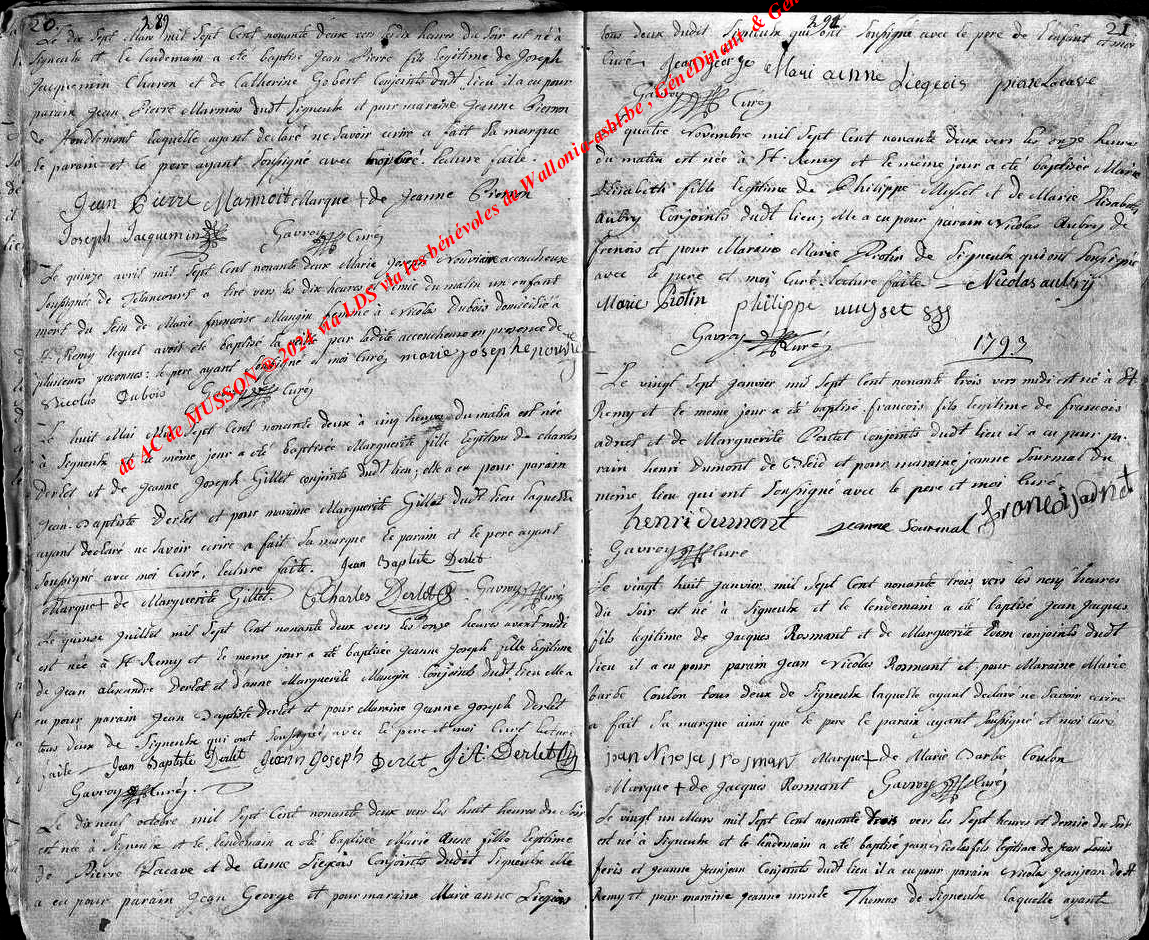 20. 289
Le dix Sept Mars mil Sept Cent nonante deux vers les dix heures du Soir est né à
Signeulx et le lendemain a été baptisé Jean Pierre fils legitime de Joseph
Jacquemin Charon et de Catherine Gobert Conjoints dudt lieu il a eu pour
parain Jean Pierre Marmoit dudt Signeulx et pour maraine Jeanne Pierson
de laquelle ayant declaré ne Savoir ecrire a fait Sa marque
le parain et le pere ayant Soussigné avec lecture faite.
Jean Pierre Marmoit Marque + de Jeanne Pierson
Joseph Jacquemin Gavroy Curé
Le quinze avril mil Sept Cent nonante deux Marie Joseph accoucheuse
Soussignée de a tiré vers les dix heures et demie du matin un enfant
mort du Sein de Marie françoise Mangin femme à Nicolas Dubois domicilié à
St Remy lequel avoit été baptisé par ladite accoucheuse en presence de
plusieurs personnes: le pere ayant Soussigné et moi Curé marie joseph
Nicolas Dubois Curé
Le huit Mai Mil Sept Cent nonante deux à cinq heures du matin est née
à Signeulx et le même jour a été baptisée Marguerite fille legitime de charles
Derlet et de Jeanne Joseph Gillet conjoints dudt lieu; elle a eu pour parain
Jean-Baptiste Derlet et pour maraine Marguerite Gillet dudt lieu laquelle
ayant declaré ne Savoir ecrire a fait Sa marque le parain et le pere ayant
Soussigné avec moi Curé, lecture faite. Jean Baptiste Derlet
Marque + de Marguerite Gillet Charles Derlet Gavroy Curé
Le quinze Juillet mil Sept Cent nonante deux vers les onze heures avant midi
est née à St Remy et le meme jour a été baptisée Jeanne Joseph fille legitime
de Jean alexandre Derlet et d'anne Marguerite Mangin Conjoints dudt lieu elle a
eu pour parain Jean Baptiste Derlet et pour Maraine Jeanne Joseph Derlet
tous deux de Signeulx qui ont Soussigné, avec le pere et moi Curé lecture
faite – Jean Baptiste Derlet Jeann Joseph Derlet J.A. Derlet
Gavroy Curé.
Le dix neuf octobre mil Sept Cent nonante deux vers les huit heures du Soir
est née à Signeulx et le lendemain a été baptisée Marie Anne fille legitime
de Pierre Lacave et de Anne Liegeois Conjoints dudit Signeulx elle
a eu pour parain Jean George et pour maraine Marie anne Liegeois
291 21
tous deux dudit Signeulx qui ont Soussigné avec le pere de l'enfant et moi
Curé Jean George Mari anne Liegeois piere Lacave
Gavroy Curé
quatre Novembre mil Sept Cent nonante deux vers les onze heures
du matin est née à St Remy et le même jour a été baptisée Marie
Elisabeth fille legitime de Philippe Musset et de Marie Elisabeth
Aubry Conjoints dudt lieu; elle a eu pour parain Nicolas Aubry de
frenois et pour Maraine Marie Protin de Signeulx qui ont Soussigné
avec le pere et moi Curé lecture faite – Nicolas aubry
Marie Protin philippe musset
Gavroy Curé
1793
Le vingt Sept Janvier mil Sept Cent nonante trois vers midi est né à St
Remy et le meme jour a été baptisé françois fils legitime de francois
adnet et de Marguerite conjoints dudt lieu il a eu pour pa-
rain henri Dumont de et pour maraine jeanne Sournal du
même lieu qui ont Soussigné avec le pere et moi Curé
henri dumont jeanne Sournal francois adnet
Gavroy Curé
Le vingt huit Janvier mil Sept Cent nonante trois vers les neuf heures
du Soir est né à Signeulx et le lendemain a été baptisé Jean Jacques
fils legitime de Jacques Rosmant et de Marguerite conjoints dudt
lieu il a eu pour parain Jean Nicolas Rosmant et pour Maraine Marie
barbe Coulon tous deux de Signeulx laquelle ayant declaré ne Savoir ecrire
a fait Sa marque ainsi que le pere le parain ayant Soussigné et moi Curé
jean Nicolas rosmant Marque + de Marie Barbe Coulon
Marque + de Jacques Rosmant Gavroy Curé
Le vingt un Mars mil Sept Cent nonante trois vers les Sept heures et demie du Soir
est né à Signeulx et le lendemain a été baptisé jean nicolas fils legitime de Jean Louis
feris et jeanne jeanjean Conjoints dudt lieu il a eu pour parain Nicolas jeanjean de St
Remy et pour maraine jeanne Thomas de Signeulx laquelle ayant
de AC de MUSSON © 2024 via LDS via les bénévoles de Wallonia-asbl.be , GénéDinant & Gén